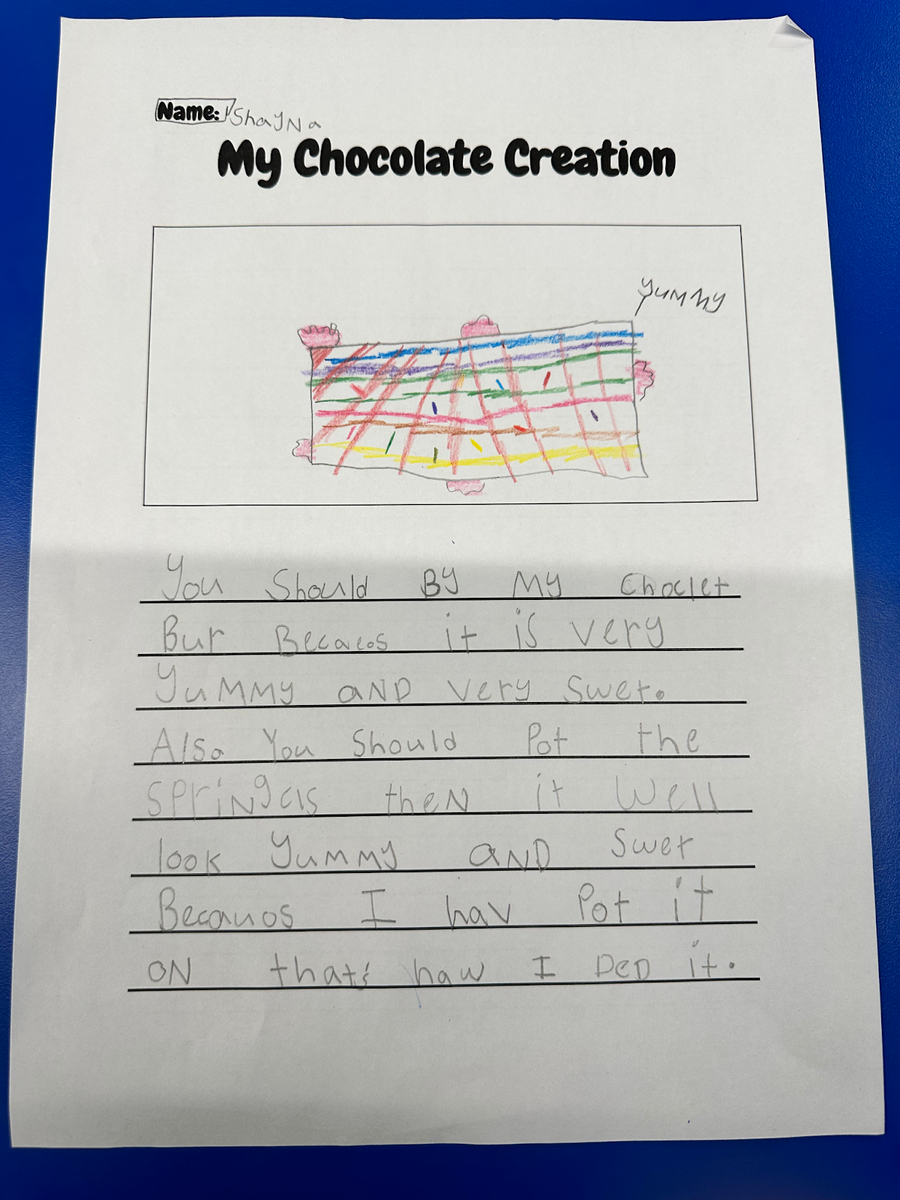 Name: Shayna
My Chocolate Creation
yummy
You Should By My Choclet
Bur Becaeos it is very
Yummy and very Swet.
Also You Should Pot the
springcls then it well
look yummy and Swet
Becauos I hav Pot it
on that's haw I Ded it.